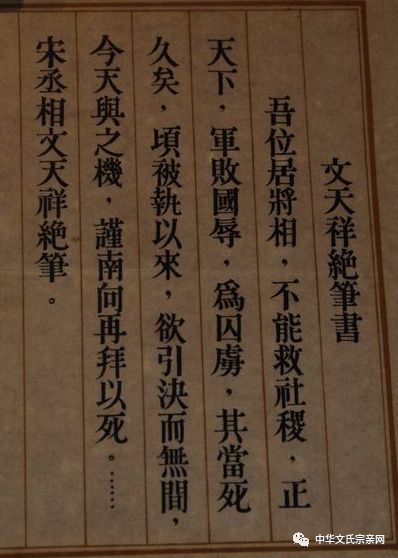 文天祥絕筆書
吾位居將相，不能救社稷，正
天下，軍敗國辱，爲囚虜，其當死
久矣，頃被執以來，欲引決而無間，
今天與之機，謹南向再拜以死。……
宋丞相文天祥絕筆。
中华文氏宗亲网